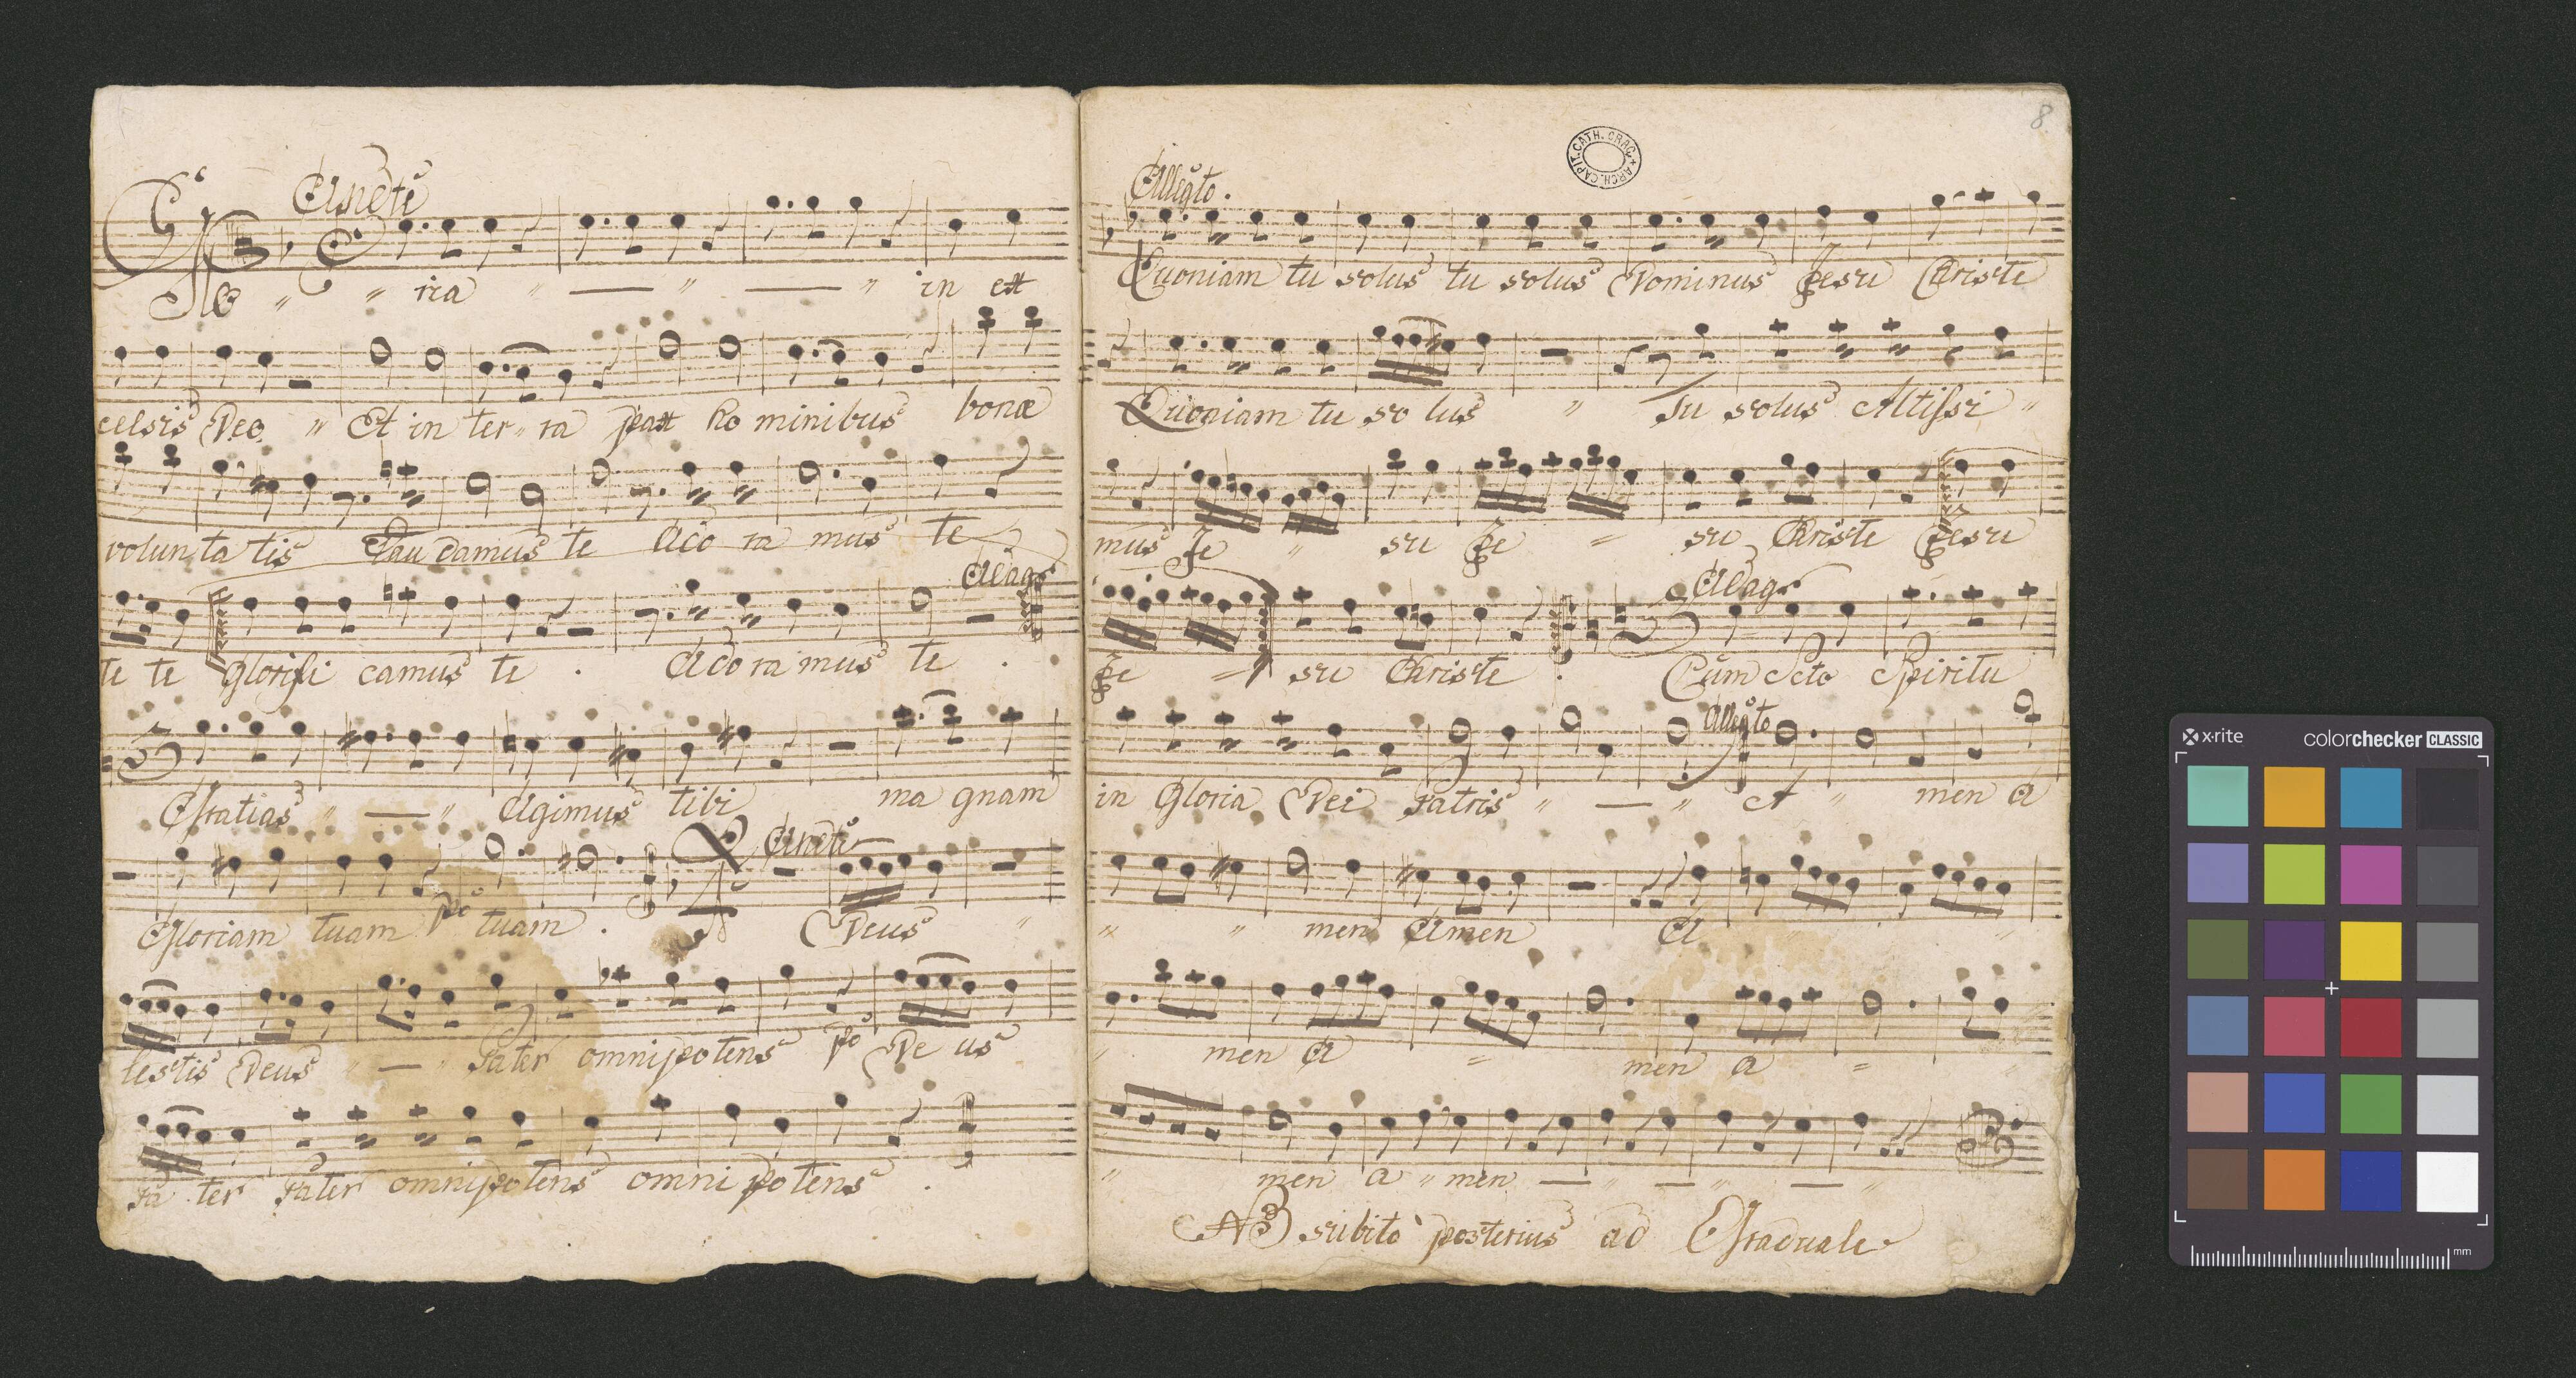 Andte
Glo " " ria " — " — " in ex
celsis Deo " Et in ter " ra pax ho minibus bonæ
volun ta tis Lau damus te Ado ra mus te
Adag°
te te Glorifi camus te . Ado ra mus te .
Gratias " — " Agimus tibi ma gnam
Andte
Gloriam tuam po tuam . Deus "
lestis Deus " — " Pater omnipotens po De us
Pa ter Pater omnipotens omni potens .
8
ARCH. CAPIT. CATH. CRAC.
Allegto.
Quoniam tu solus tu solus Dominus Jesu Christe
Quoniam tu so lus " Tu solus Altissi "
mus Je " su Je = su Christe Jesu
Adag°
Je = su Christe . Cum Scto Spiritu
Allegto
in Gloria Dei Patris " — " A " men A
" " men Amen A "
" men A = men a =
" men a " men — " — " — "
NB subito posterius ad Graduale
x-rite colorchecker CLASSIC
mm